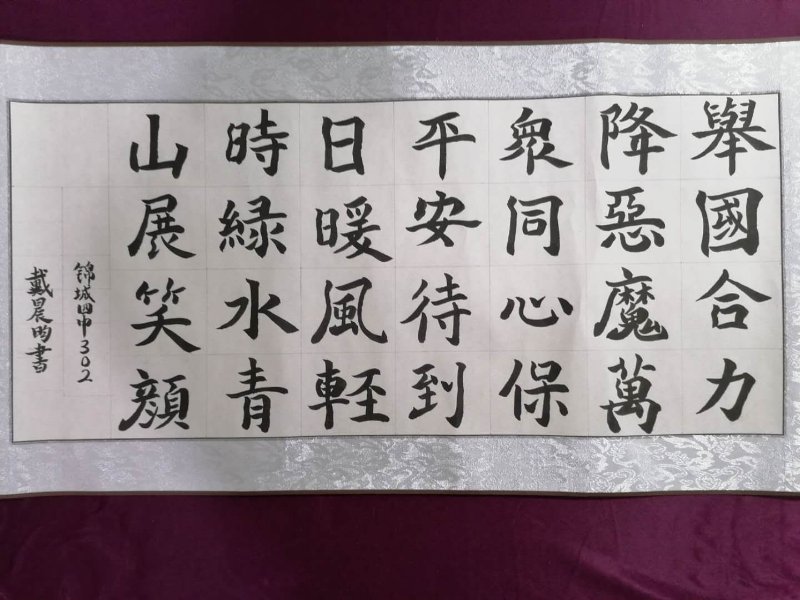 舉國合力
降惡魔萬
衆同心保
平安待到
日暖風輕
時緑水青
山展笑顔
锦城四中302
戴晨昀書